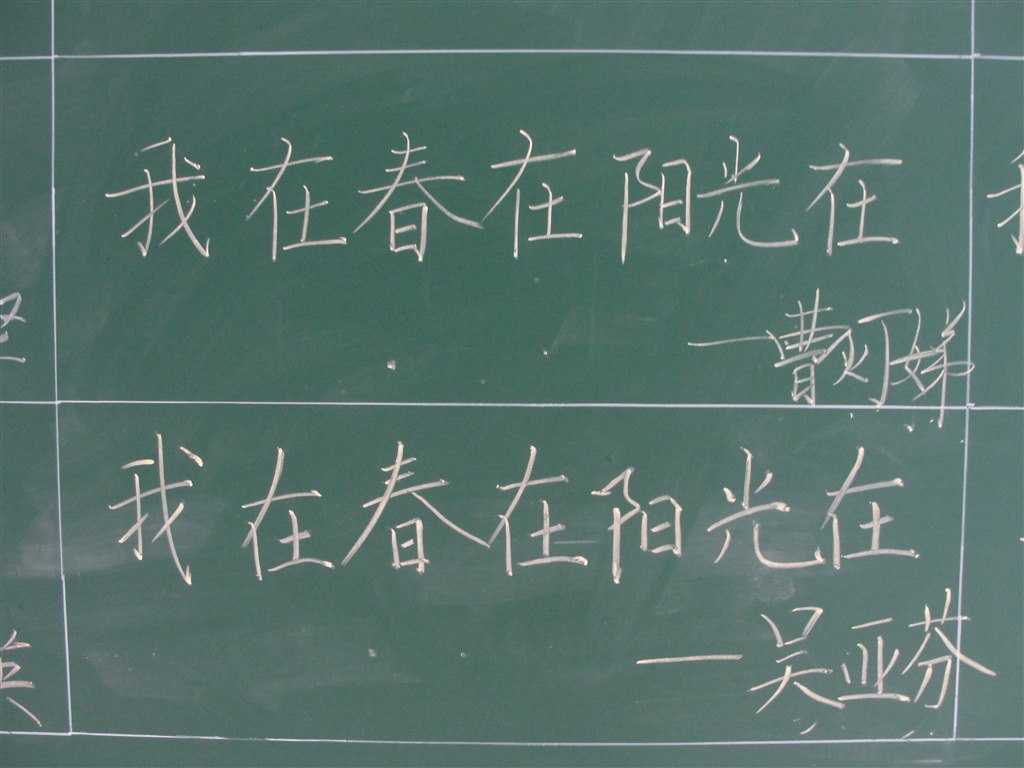 我在春在阳光在
我在春在阳光在
一吴亚芬